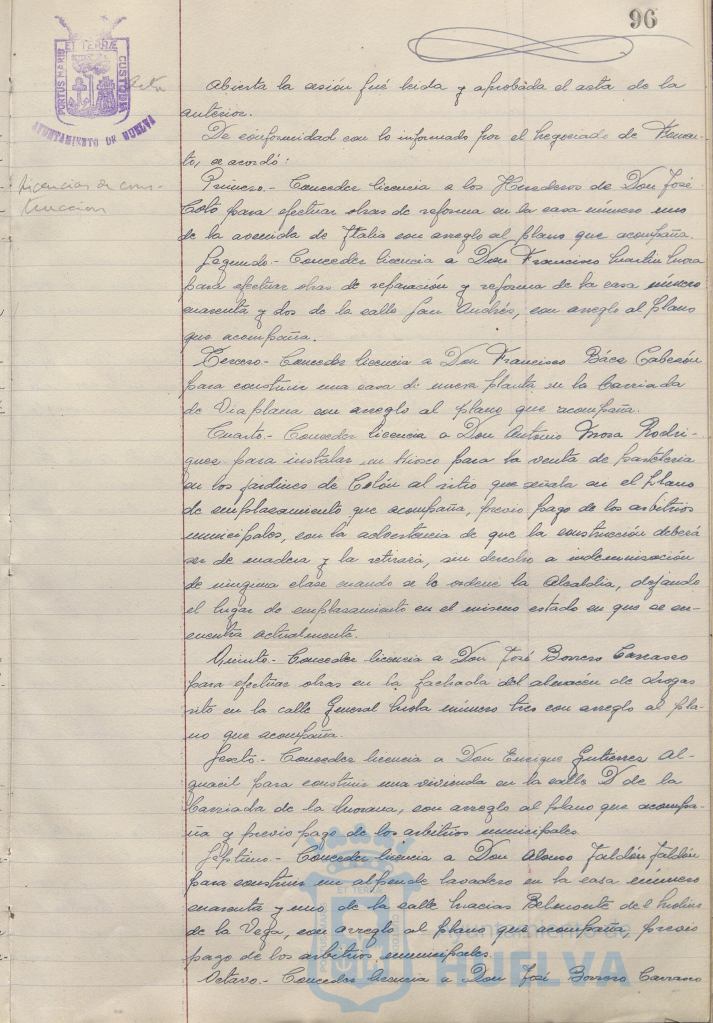 96
ET TERRÆ
PORTUS MARIS
CUSTODIA
AYUNTAMIENTO DE HUELVA
Acta
Abierta la sesión fué leida y aprobada el acta de la
anterior.
De conformidad con lo informado por el Negociado de Fomen-
to, se acordó:
Licencias de cons-
trucción
Primero.- Conceder licencia a los Herederos de Don José
Coto para efectuar obras de reforma en la casa número uno
de la avenida de Italia con arreglo al plano que acompaña.
Segundo.- Conceder licencia a Don Francisco Martin Mora
para efectuar obras de reparación y reforma de la casa número
cuarenta y dos de la calle San Andrés, con arreglo al plano
que acompaña.
Tercero.- Conceder licencia a Don Francisco Báez Cabezón
para construir una casa de nueva planta en la barriada
de Viaplana con arreglo al plano que acompaña.
Cuarto.- Conceder licencia a Don Antonio Mora Rodri-
guez para instalar un kiosco para la venta de pasteleria
en los jardines de Colón al sitio que señala en el plano
de emplazamiento que acompaña, previo pago de los arbitrios
municipales, con la advertencia de que la construcción deberá
ser de madera y la retirará, sin derecho a indemnización
de ninguna clase cuando se lo ordene la Alcaldia, dejando
el lugar de emplazamiento en el mismo estado en que se en-
cuentra actualmente.
Quinto.- Conceder licencia a Don José Borrero Carrasco
para efectuar obras en la fachada del almacén de drogas
sito en la calle General Mola número tres con arreglo al pla-
no que acompaña.
Sexto.- Conceder licencia a Don Enrique Gutierrez Al-
guacil para construir una vivienda en la calle D de la
barriada de la Morana, con arreglo al plano que acompa-
ña y previo pago de los arbitrios municipales
Séptimo.- Conceder licencia a Don Alonso Jaldón Jaldón
para construir un alpende lavadero en la casa número
cuarenta y uno de la calle Macias Belmonte del Molino
de la Vega, con arreglo al plano que acompaña, previo
pago de los arbitrios municipales.
Octavo.- Conceder licencia a Don José Borrero Carrasco
Ayuntamiento de
HUELVA